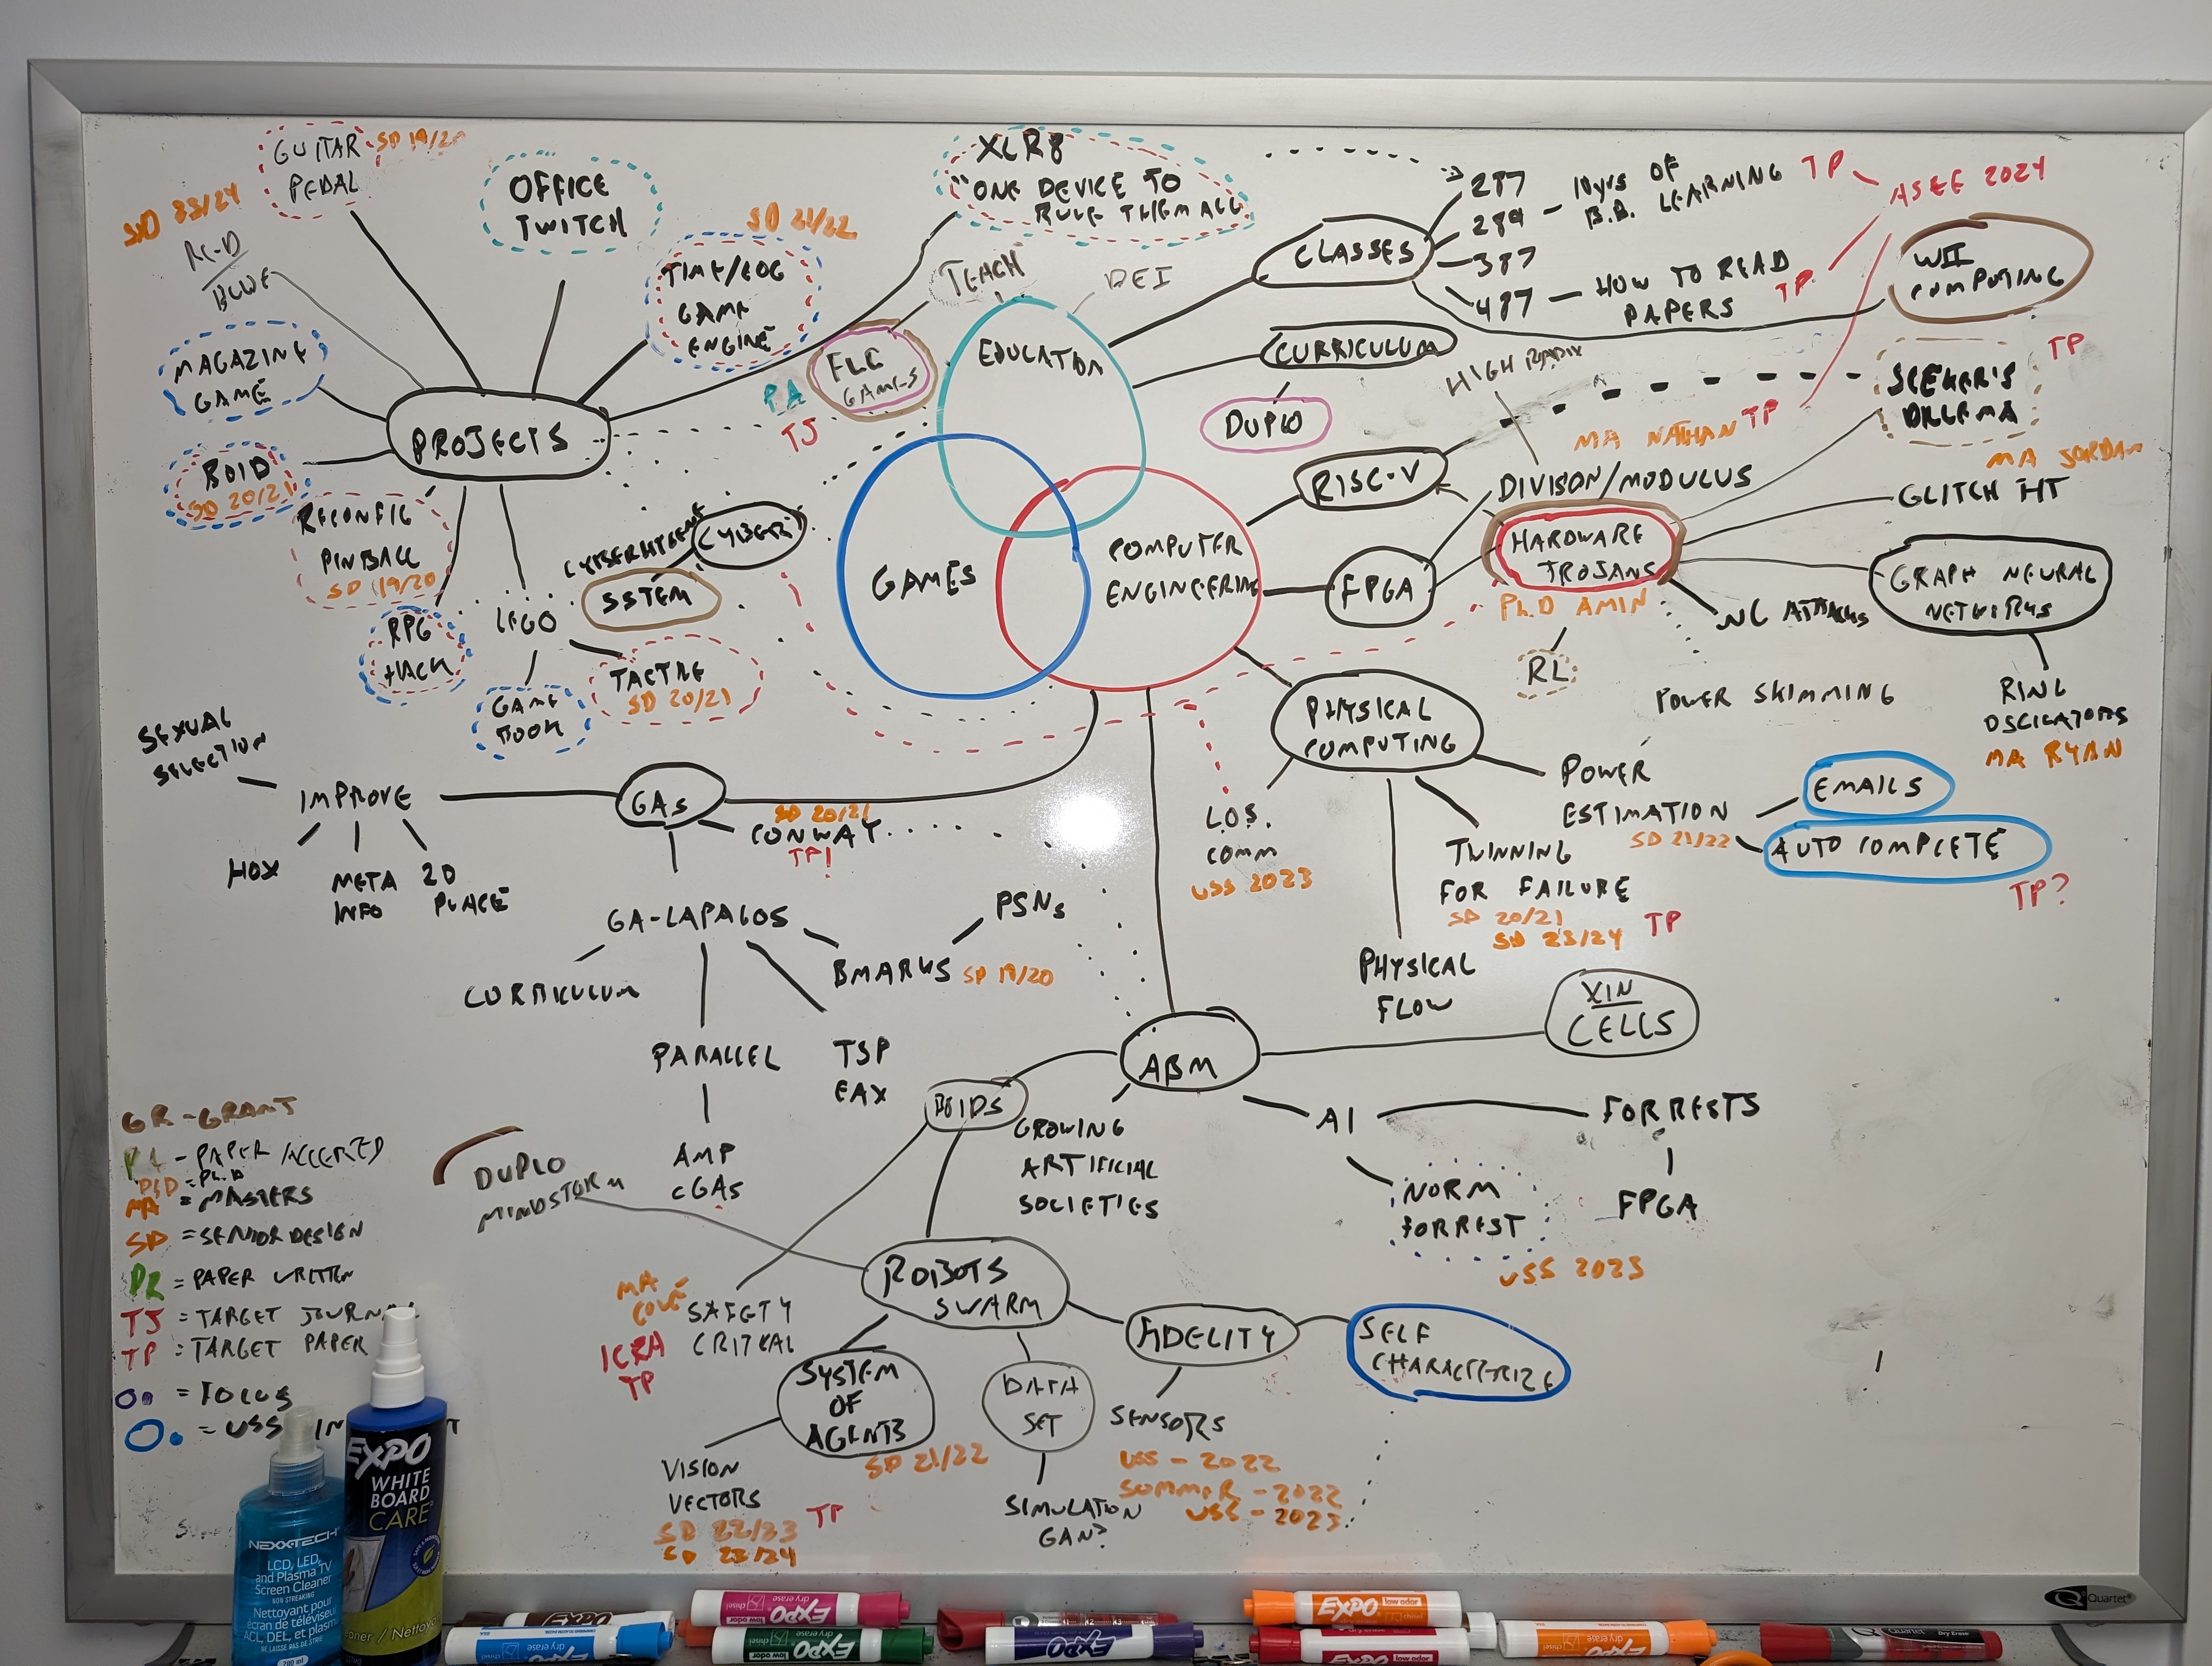 GUITAR
PEDAL
SD 19/20
OFFICE
TWITCH
SD 23/24
BLUE
MAGAZINE
GAME
TIME/LOG
GAME
ENGINE
SD 21/22
XLR8
"ONE DEVICE TO
RULE THEM ALL
TEACH
DEI
FLC
GAMES
PA
TJ
PROJECTS
BOID
SD 20/21
RECONFIG
PINBALL
SD 19/20
RPG
HACK
LEGO
GAME
BOOK
TACTILE
SD 20/21
CYBER
SSTEM
EDUCATION
GAMES
COMPUTER
ENGINEERING
CLASSES
287
289 - 10yrs OF
B.B. LEARNING TP
387
487 - HOW TO READ
PAPERS TP
ASEE 2024
WII
COMPUTING
CURRICULUM
DUPLO
HIGH RADIX
RISC-V
MA NATHAN TP
SEEKER'S
DILLEMA
TP
MA JORDAN
DIVISON/MODULUS
GLITCH HT
FPGA
HARDWARE
TROJANS
Ph.D AMIN
RL
NC ATTACKS
GRAPH NEURAL
NETWORKS
POWER SKIMMING
RING
OSCILATORS
MA RYAN
PHYSICAL
COMPUTING
L.O.S.
COMM
USS 2023
POWER
ESTIMATION
SD 21/22
EMAILS
AUTO COMPLETE
TP?
TWINNING
FOR FAILURE
SD 20/21
SD 23/24
TP
PHYSICAL
FLOW
SEXUAL
SELECTION
IMPROVE
HOX
META
INFO
2D
PLACE
GAs
SD 20/21
CONWAY
TP!
GA-LAPAGOS
CURRICULUM
PARALLEL
AMP
cGAs
TSP
EAX
BMARKS SD 19/20
PSNs
ABM
XIN
CELLS
BOIDS
GROWING
ARTIFICIAL
SOCIETIES
AI
FORRESTS
FPGA
NORM
FORREST
USS 2023
DUPLO
MINDSTORM
ROBOTS
SWARM
MA
COLE
SAFETY
CRITICAL
ICRA
TP
SYSTEM
OF
AGENTS
SD 21/22
VISION
VECTORS
TP
SD 22/23
SD 23/24
DATA
SET
SIMULATION
GAN?
FIDELITY
SENSORS
USS - 2022
SUMMER - 2022
USS - 2023
SELF
CHARACTERIZE
GR - GRANT
PA - PAPER ACCEPTED
PhD = Ph.D
MA = MASTERS
SD = SENIOR DESIGN
PR = PAPER WRITTEN
TJ = TARGET JOURNAL
TP = TARGET PAPER
= FOCUS
= USS IN
NEXXTECH
LCD, LED,
and Plasma TV
Screen Cleaner
NON STREAKING
Nettoyant pour
écran de téléviseur
ACL, DEL, et plasma
NE LAISSE PAS DE STRIE
200 ml
EXPO
WHITE
BOARD
CARE
Quartet
EXPO
low odor
chisel
dry erase
EXPO
EXPO
low odor
EXPO
EXPO
EXPO
EXPO
EXPO
EXPO
Quartet